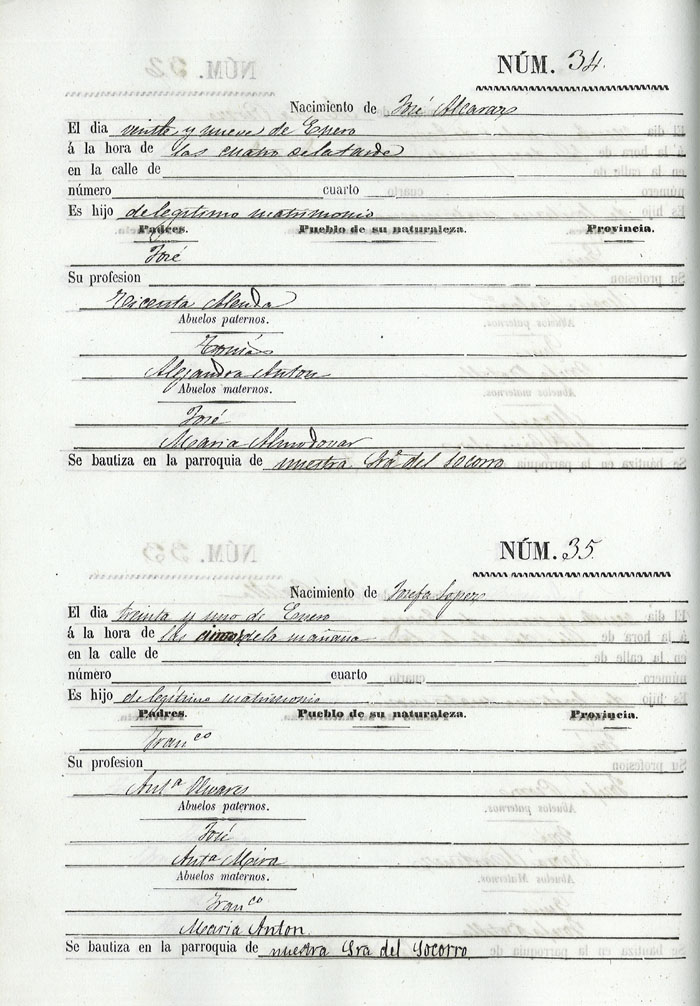 NÚM. 34.
Nacimiento de José Alcaraz
El dia veinte y nueve de Enero
á la hora de las cuatro de la tarde
en la calle de
número cuarto
Es hijo de legitimo matrimonio
Padres. Pueblo de su naturaleza. Provincia.
José
Su profesion
Vicenta Alenda
Abuelos paternos.
Tomás
Alejandra Anton
Abuelos maternos.
José
Maria Almodovar
Se bautiza en la parroquia de nuestra Sra. del Socorro
NÚM. 35.
Nacimiento de Josefa Lopez
El dia treinta y uno de Enero
á la hora de las cinco de la mañana
en la calle de
número cuarto
Es hijo de legitimo matrimonio
Padres. Pueblo de su naturaleza. Provincia.
Franco
Su profesion
Anta Olivares
Abuelos paternos.
José
Anta Mira
Abuelos maternos.
Franco
Maria Anton
Se bautiza en la parroquia de nuestra Sra del Socorro